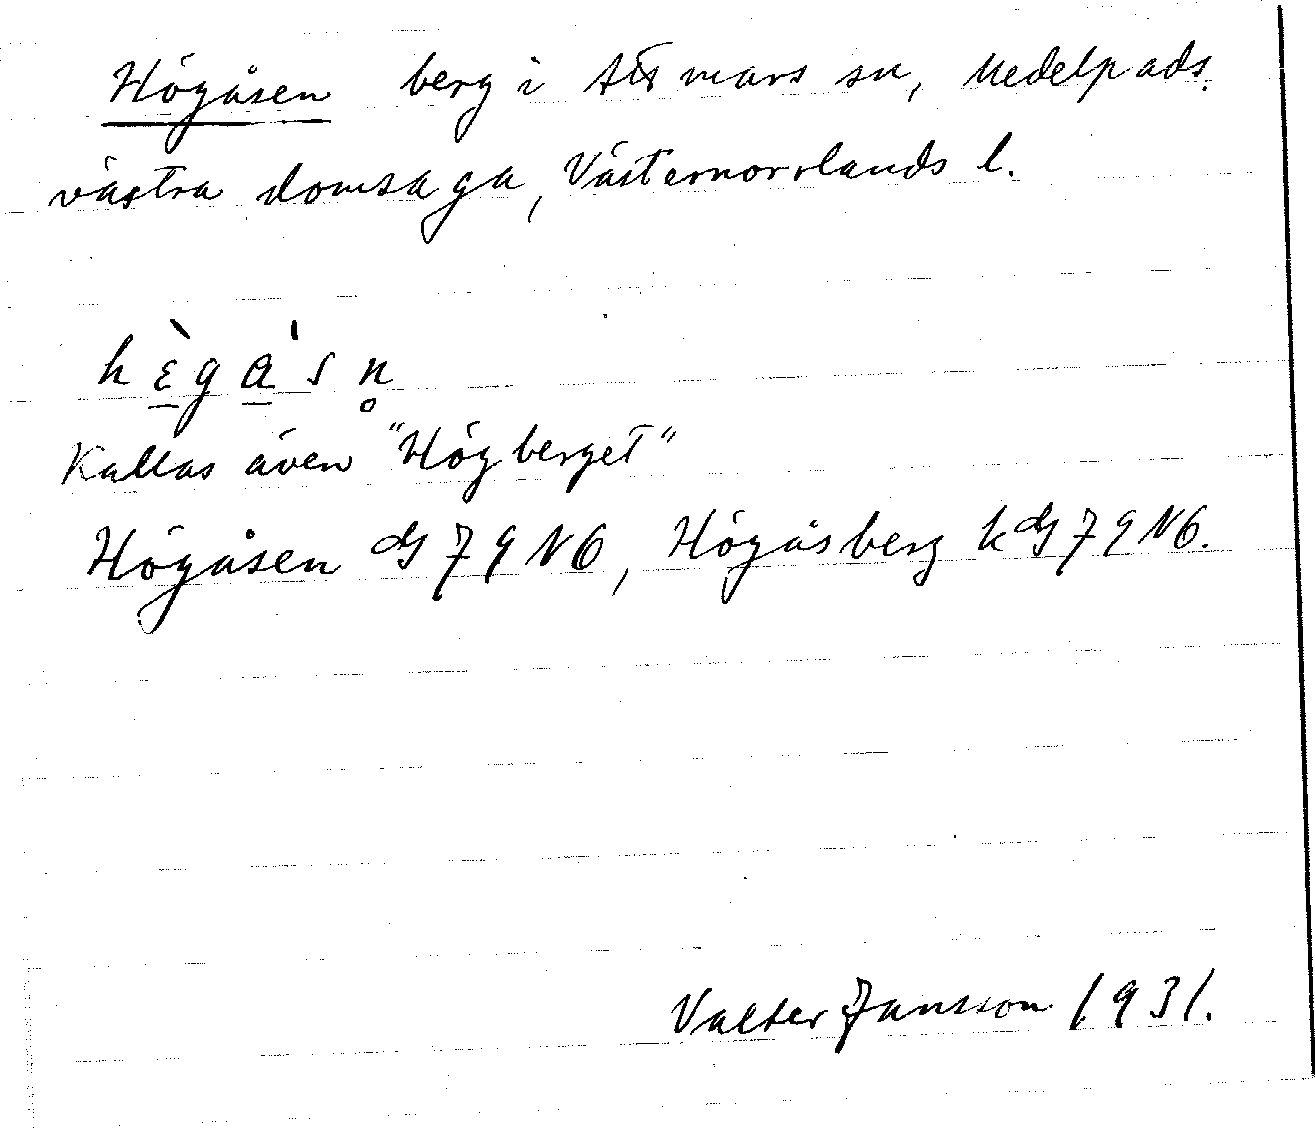 Högåsen berg i Attmars sn, Medelpads.
västra domsaga, Västernorrlands l.
hɛ̀gås n̥
Kallas även "Högberget"
Högåsen dG 79 NO, Högåsberg k dG 79 NO.
Valter Jansson 1931.